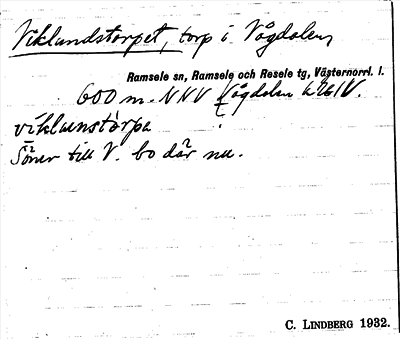 Viklundstorpet, torp i Vågdalen,
Ramsele sn, Ramsele och Resele tg, Västernorrl. l.
600 m. NNV Vågdalen
viklunstòrpa
Söner till V. bo där nu.
C. LINDBERG 1932.